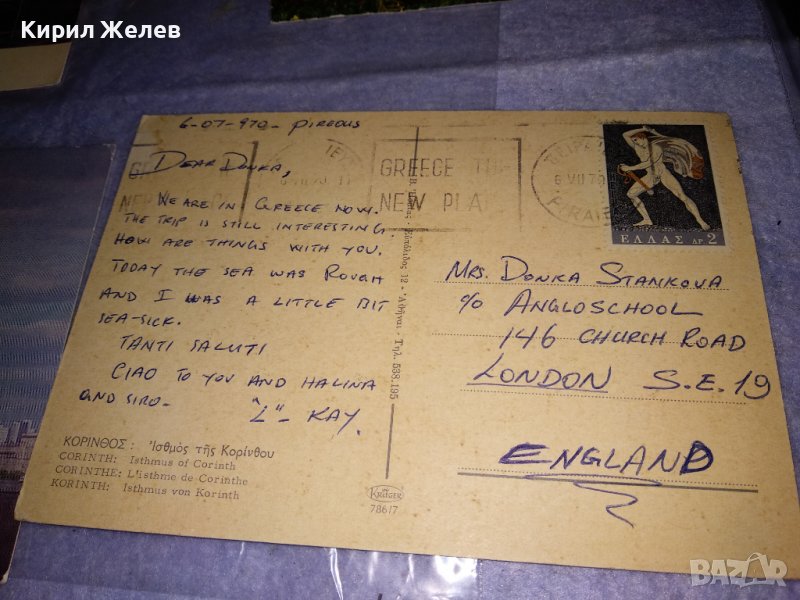 Кирил Желев
6-07-970- PIREOUS
DEAR DONKA,
WE ARE IN GREECE NOW.
THE TRIP IS STILL INTERESTING
HOW ARE THINGS WITH YOU.
TODAY THE SEA WAS ROUGH
AND I WAS A LITTLE BIT
SEA-SICK.
TANTI SALUTI
CIAO TO YOU AND HALINA
AND SIRO-
"L"- KAY.
ΚΟΡΙΝΘΟΣ: Ἰσθμὸς τῆς Κορίνθου
CORINTH: Isthmus of Corinth
CORINTHE: L'isthme de Corinthe
KORINTH: Isthmus von Korinth
12 - Ἀθῆναι - Τηλ. 538.195
KRÜGER
786/7
GREECE
NEW PLA
6 VII 70
ΕΛΛΑΣ ΔΡ 2
MRS. DONKA STANKOVA
c/o ANGLOSCHOOL
146 CHURCH ROAD
LONDON S.E. 19
ENGLAND
BAZAR